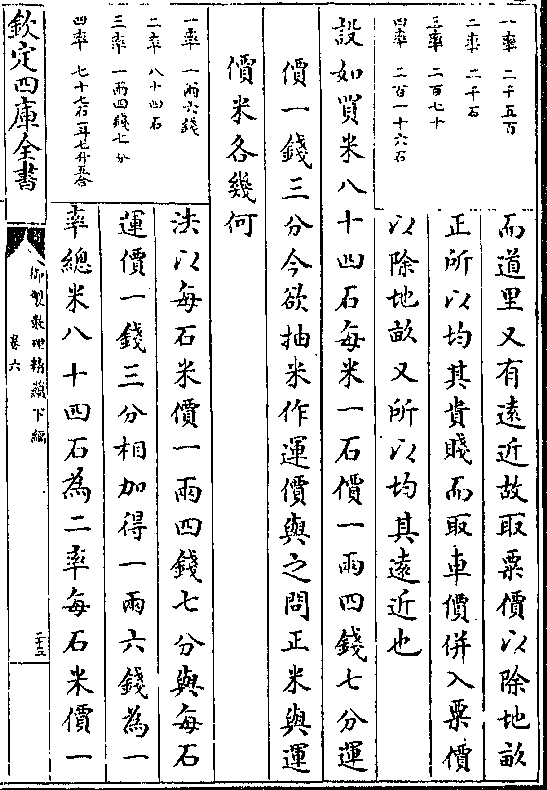 一率　二千五百
二率　二千石
三率　二百七十
四率　二百一十六石
而道里又有遠近故取粟價以除地畝
正所以均其貴賤而取車價併入粟價
以除地畝又所以均其遠近也
設如買米八十四石每米一石價一兩四錢七分運
價一錢三分今欲抽米作運價與之問正米與運
價米各幾何
一率　一兩六錢
二率　八十四石
三率　一兩四錢七分
四率　七十七石一斗七升五合
法以每石米價一兩四錢七分與每石
運價一錢三分相加得一兩六錢為一
率總米八十四石為二率每石米價一
欽定四庫全書
御製數理精蘊下編
卷六
二十五